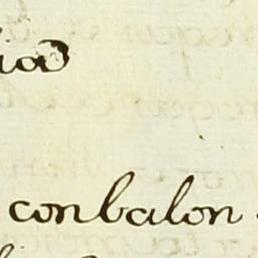 iad
conbalon